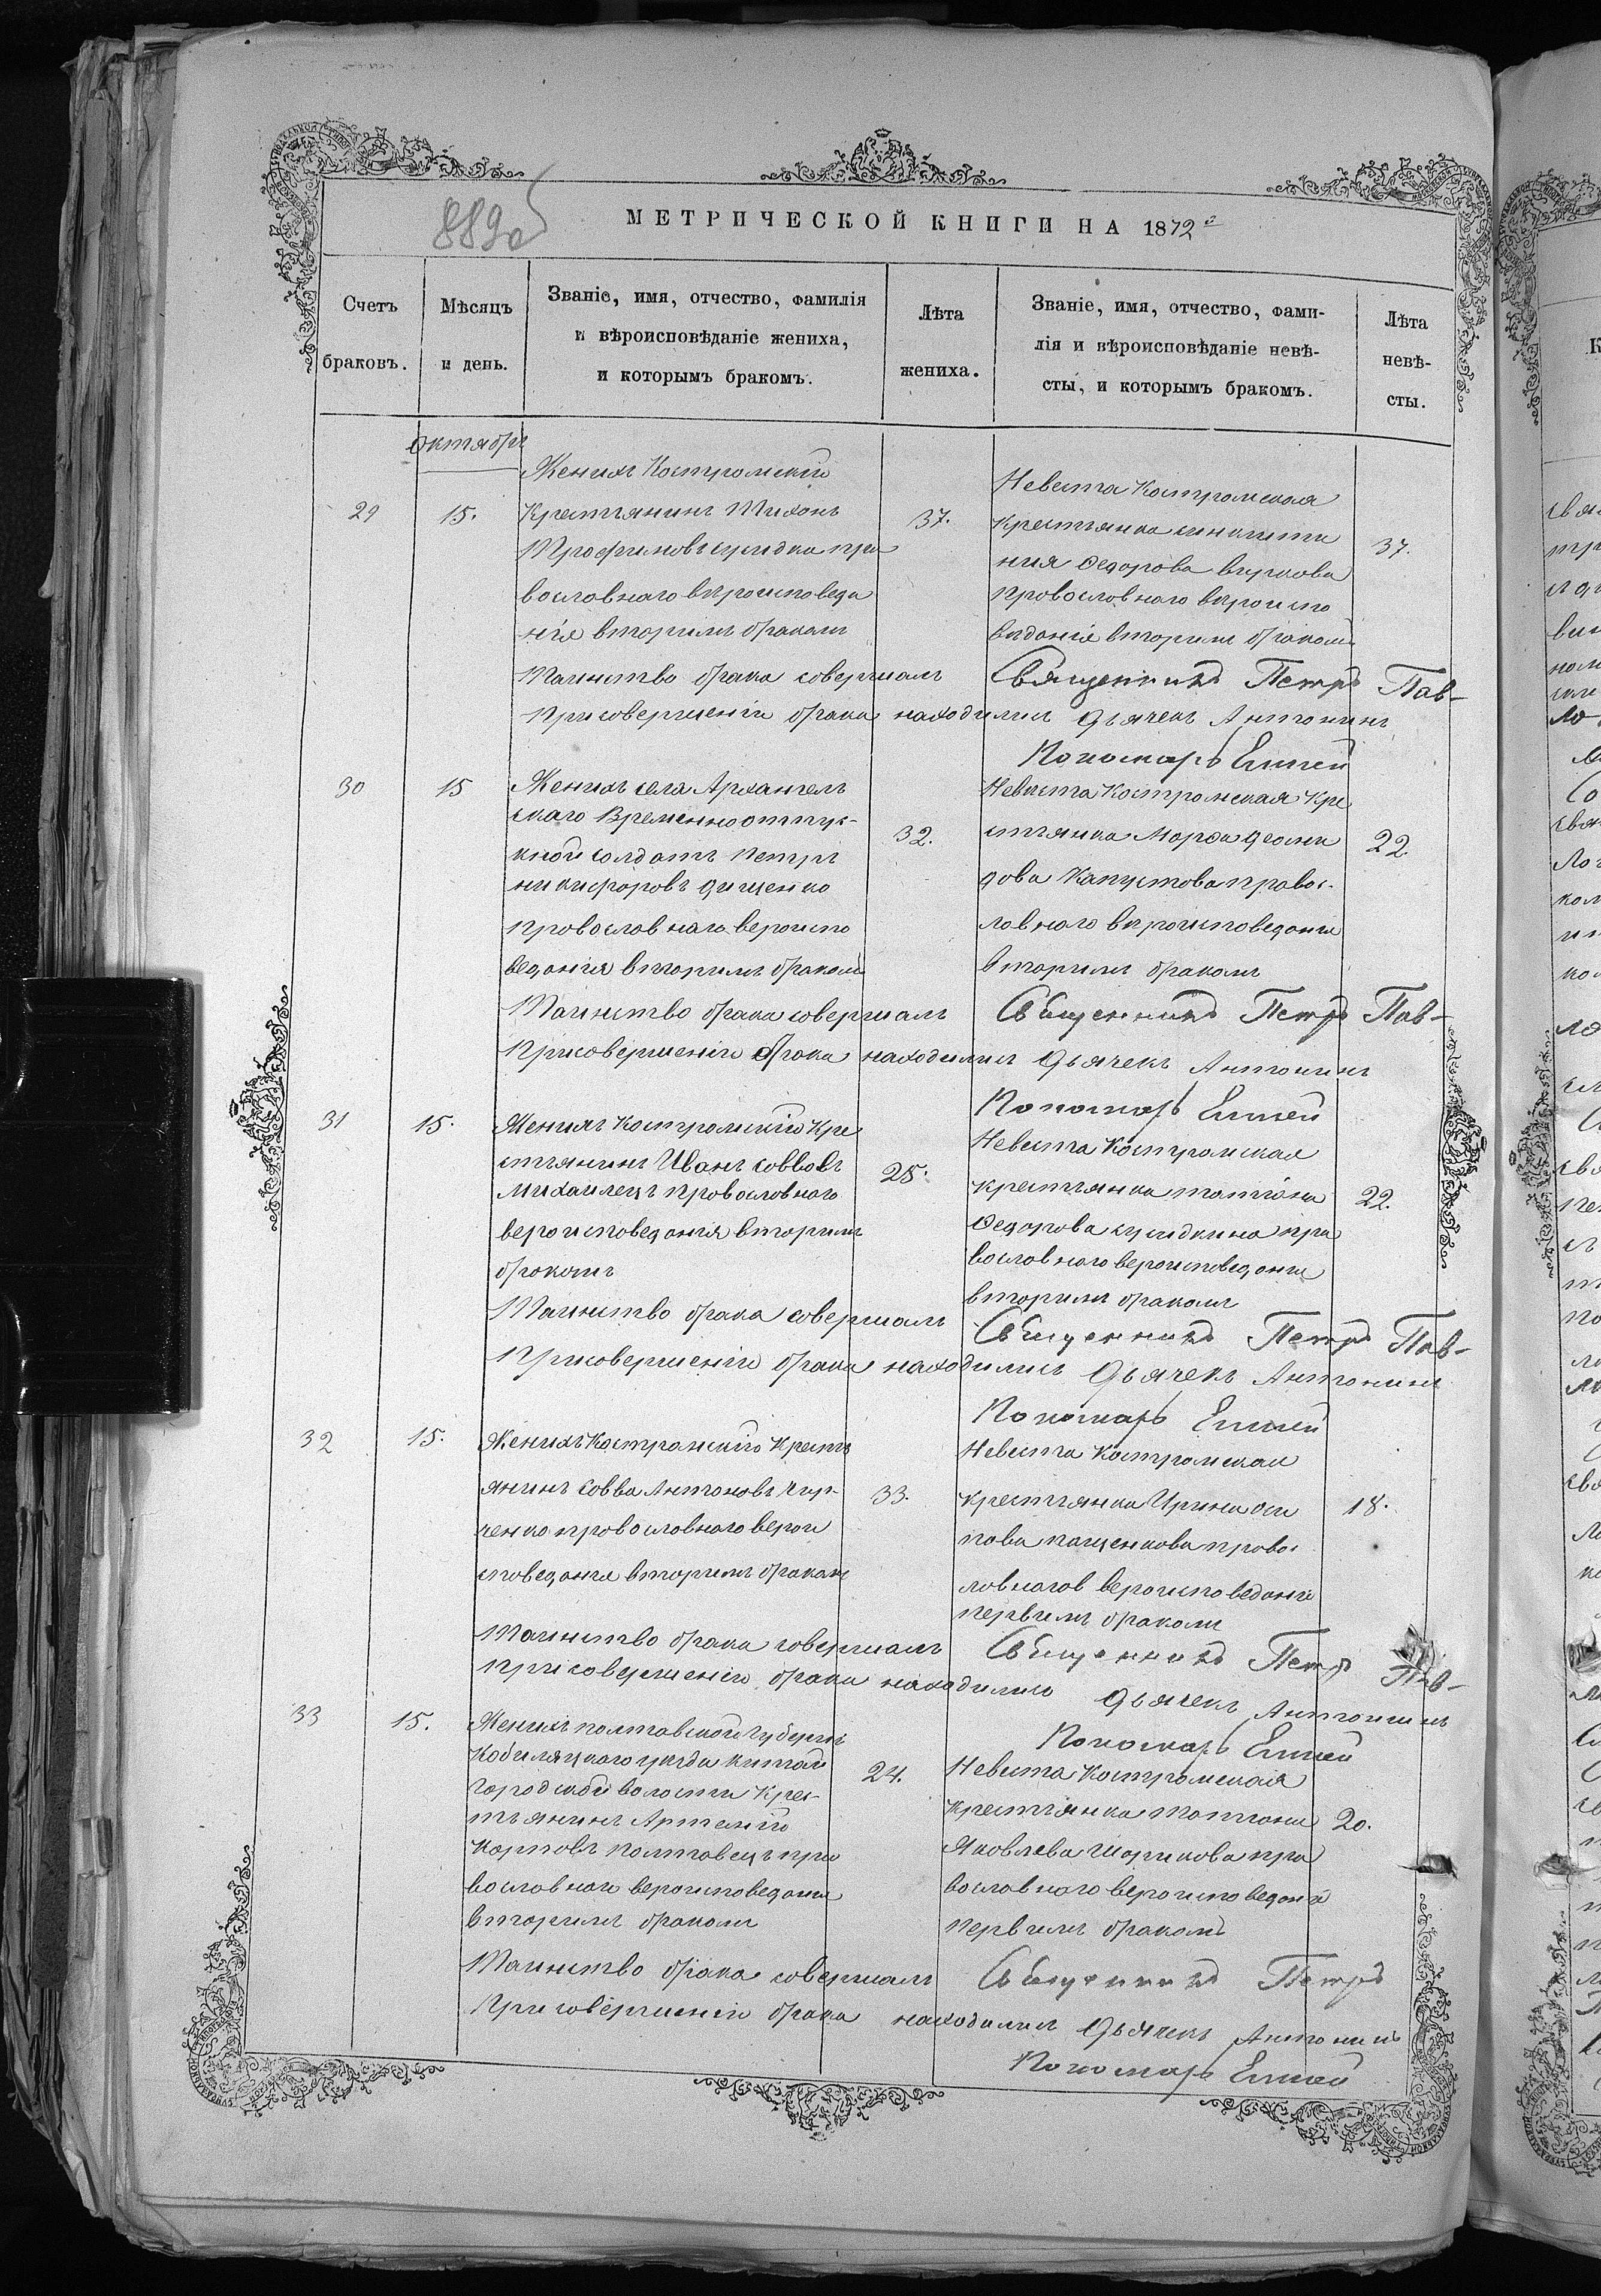 889об
МЕТРИЧЕСКОЙ КНИГИ НА 1872й
Счетъ
браковъ.
Мѣсяцъ
и день.
Званіе, имя, отчество, фамилія
и вѣроисповѣданіе жениха,
и которымъ бракомъ.
Лѣта
жениха.
Званіе, имя, отчество, фами-
лія и вѣроисповѣданіе невѣ-
сты, и которымъ бракомъ.
Лѣта
невѣ-
сты.
октябрь
29
15.
Женихъ Костромскій
Крестьянинъ Тихонъ
Трофимовъ пра
вославнаго вѣроисповеда
нія вторимъ бракомъ
37.
Невеста Костромская
крестьянка
ния Федорова
православнаго вѣроиспо
вѣданія вторим бракомъ
37.
Таинство брака совершалъ Священникъ Петръ Пав-
При совершеніи брака находились дьячекъ Антонинъ
Пономарь Елисей
30
15
Женихъ села Архангель
скаго Временноотпус-
кной солдатъ Петръ
никифоровъ дищенко
православнаго вероиспо
веданія вторимъ бракомъ
32.
Невѣста Костромская кре
стьянка Марфа деоми
дова Капустова правос-
лавнаго вѣроисповеданія
вторимъ бракомъ
22.
Таинство брака совершалъ Священникъ Петръ Пав-
При совершеніи брака находились дьячекъ Антонинъ
Пономарь Елисей
31
15.
Женихъ Костромскій Кре
стьянинъ Иванъ Саввовъ
Михайлецъ православнаго
вероисповеданія вторимъ
бракомъ
25.
Невеста Костромская
крестьянка татіана
Федорова пра
вославнаго вероисповеданія
вторимъ бракомъ
22.
Таинство брака совершалъ Священникъ Петръ Пав-
При совершеніи брака находились дьячекъ Антонинъ
Пономарь Елисей
32
15.
Женихъ Костромскій Кресть
янинъ Савва Антоновъ
ченко православнаго верои
споведанія вторимъ бракомъ
33.
Невеста Костромская
крестьянка Ирина оси
пова пащенкова правос
лавнагов вероисповеданія
первимъ бракомъ
18.
Таинство брака совершалъ Священникъ Петръ Пав-
При совершеніи брака находились дьячекъ Антонинъ
Пономарь Елисей
33
15.
Женихъ полтавской губерніи
Кобиляцкаго уезда китай
городской волости Крес-
тьянинъ Артемій
Карповъ Полтавецъ пра
вославнаго вероисповеданія
вторимъ бракомъ
24.
Невеста Костромская
крестьянка татіана
Яковлева Шарикова пра
вославнаго вероисповеданія
первимъ бракомъ
20.
Таинство брака совершалъ Священникъ Петръ
При совершеніи брака находились дьячекъ Антонинъ
Пономарь Елисей